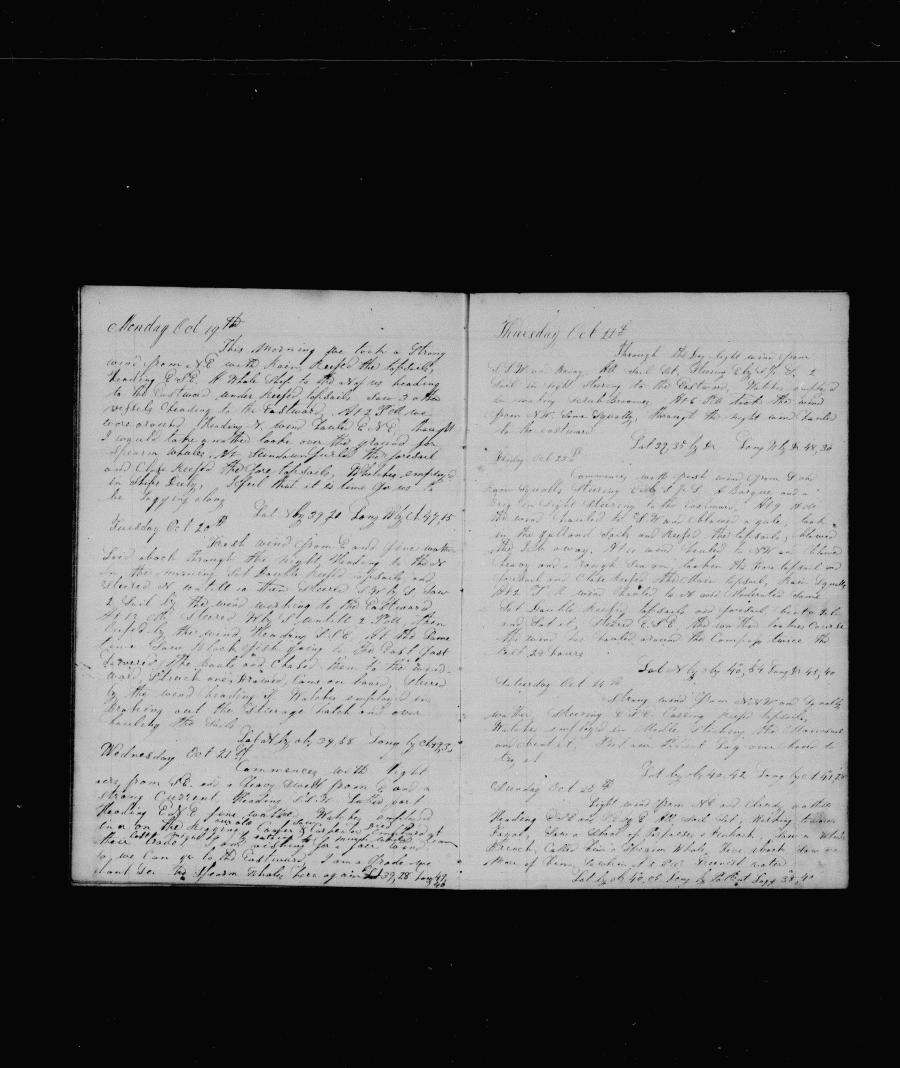 Monday Oct 19th
This Morning we took a Strong
wind from N.E. with Rain, Reefed the topsails,
heading E.S.E. A Whale Ship to the N of us heading
to the Eastward under Reefed topsails. Saw 3 other
vessels heading to the Eastward. At 2 P.M. we
wore around heading N. wind hauled E.N.E. thought
I would take another looke over the ground for
Sperm Whales. At Sundown furled the foresail
and Close Reefed the fore topsails, Watches employed
in Ships Duty, I feel that it is time for us to
be Jogging along
Lat. by 39,20 Long W by Ch 47,15
Tuesday Oct 20th
Fresh wind from E and fine weather
Laid aback through the night, heading to the N
In the morning Set Double Reefed topsails and
Steered N untill 10 then Steered S.W. by S. Saw
2 Sail by the wind working to the Eastward
At 12 M. Steered W by S. untill 2 P.M. then
luffed by the wind Heading S.S.E. At the Same
time Saw Blackfish going to the East fast
Lowered the boats and Chased them to the wind-
ward, Struck one, Drawed, Came on board, Steered
by the wind heading Watches employed in
Breaking out the Steerage hatch and over
hauling the Sails
Lat N by ob 39,58 Long by Ch 47,3
Wednesday Oct 21st
Commences with light
airs from S.E. and a heavy Swell from E and a
Strong Current Heading
Heading E.N.E. fine weather Watches employed
in on the Rigging Cooper & Carpenter
their trade. I am wishing for a fair wind
so we can go to the Eastward, I am afraid we
shant See the Sperm Whales here again Lat 39,28 Long 47,
40
Thursday Oct 22d
Through the Day light wind from
S.S.W. and Rainy. All Sail Set, Steering E by S 1/2 S. 2
Sail in sight Steering to the Eastward, Watches employed
in making Scrub Brooms. At 6 P.M. took the wind
from N.W. Some Squally, through the night wind hauled
to the eastward
Lat 39,35 by Dr Long W by Dr 48,30
Friday Oct 23d
Commences with fresh wind from S and
Rain Squalls Steering E by S 1/2 S. A Barque and a
Brig in Sight Steering to the Eastward. At 9 A.M.
the wind hauled to S.W. and blowed a gale, took
in the Sails and Reefed the topsails, blowed
the Jib away. At 11 wind hauled to N.W. and blowed
heavy and a Rough Sea on, taken the fore topsail and
foresail and Close Reefed the Main topsail, Rain Squalls
At 2 P.M. wind hauled to N and Moderated Some
Set Double Reefed topsails and foresail,
and Set it, Steered E.S.E. the
the wind has hauled around the Compass twice the
last 24 hours
Lat N by ob 40,54 Long Dr 45,40
Saturday Oct 24th
Strong wind from N.N.W. and Squally
weather, Steering E.S.E. Carring Reefed topsails,
Watches employed in Middle Stiching the Mainsail
and
try it
Lat by ob 40,42 Long by Ch 41,28
Sunday Oct 25th
Light wind from N.E. and Cloudy weather
Heading E.S.E. and S.E. by E. All Sail Set,
Saw a School of Porpoises & Finback, Saw a Whale
Breach, Called him a Sperm Whale, Hove aback Saw no
More of him,
Lat by ob 40,06 Long by 38,40